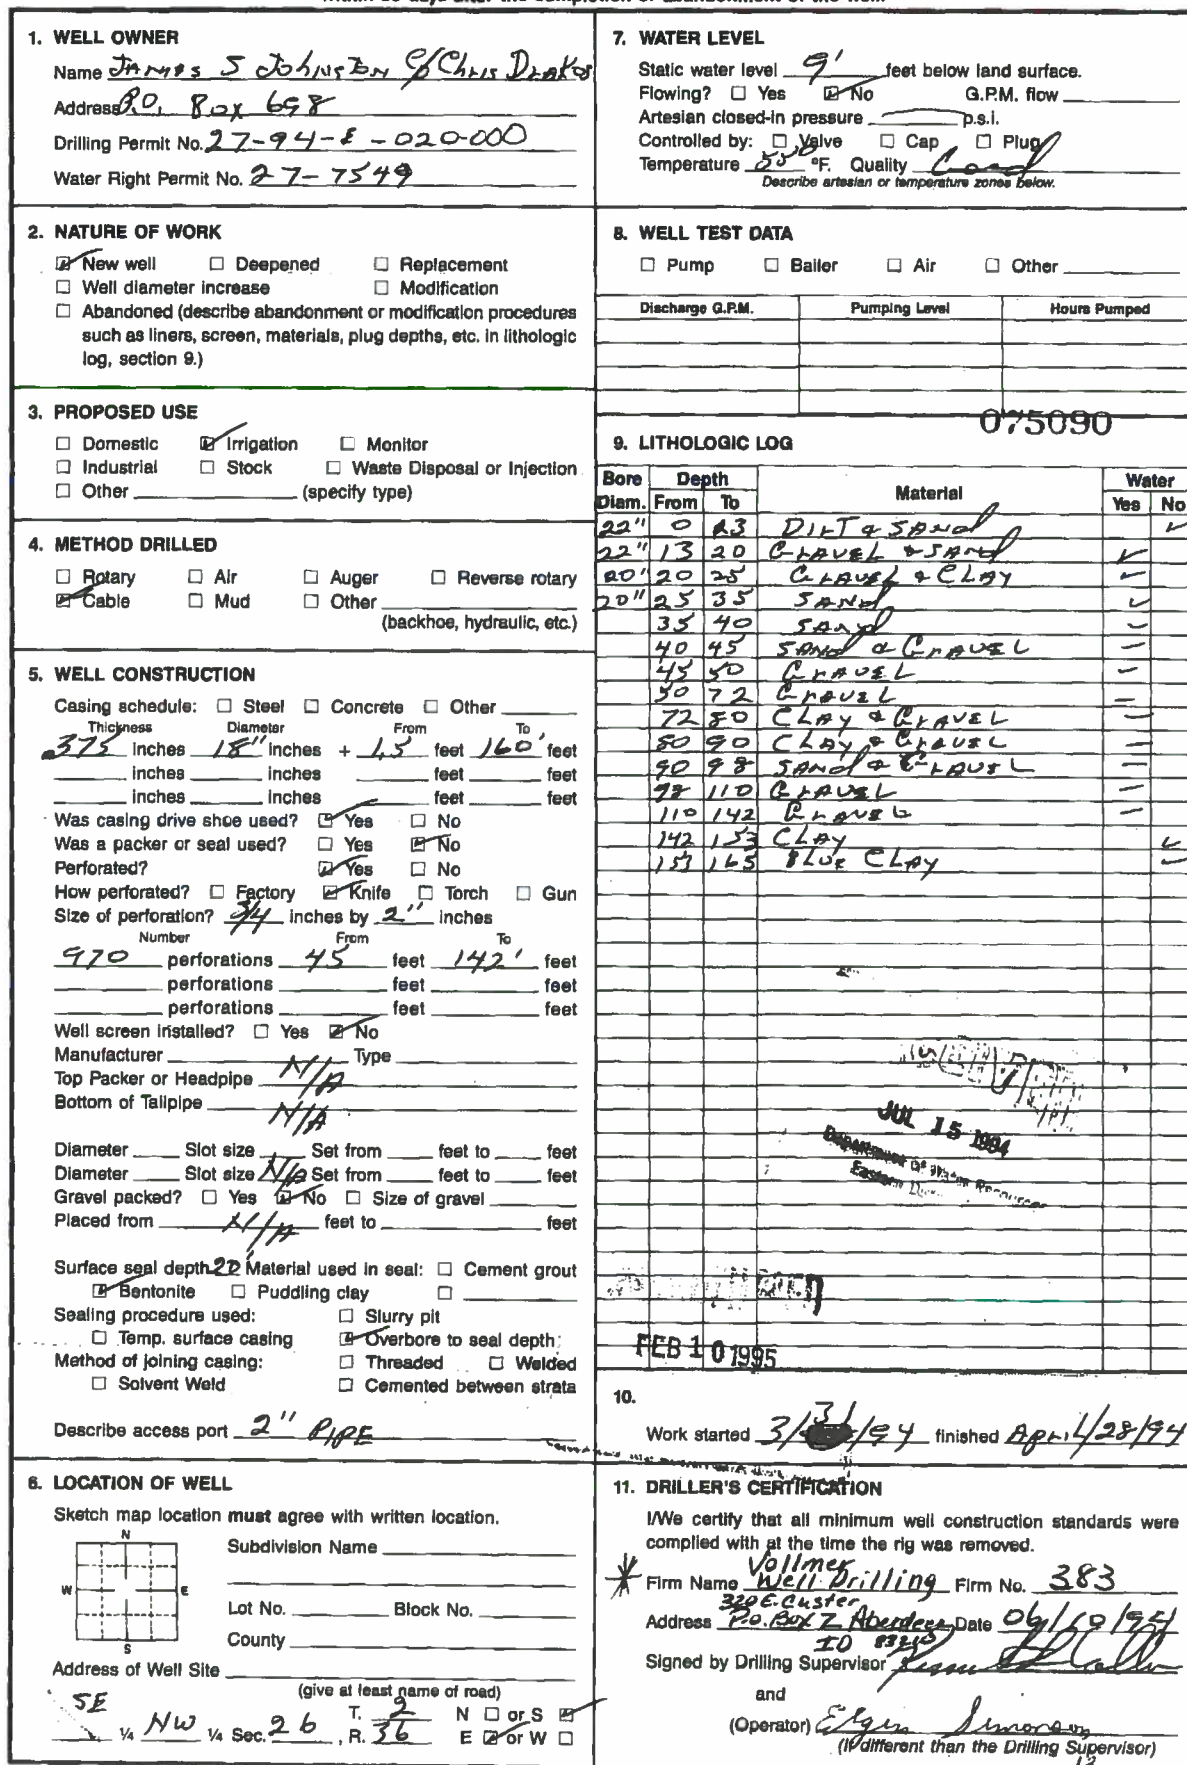 1. WELL OWNER
Name JAMES S JOHNSTON C/O CHRIS DRAKOS
Address P.O. BOX 698
Drilling Permit No. 27-94-E-020-000
Water Right Permit No. 27-7549
2. NATURE OF WORK
New well Deepened Replacement
Well diameter increase Modification
Abandoned (describe abandonment or modification procedures
such as liners, screen, materials, plug depths, etc. in lithologic
log, section 9.)
3. PROPOSED USE
Domestic Irrigation Monitor
Industrial Stock Waste Disposal or Injection
Other (specify type)
4. METHOD DRILLED
Rotary Air Auger Reverse rotary
Cable Mud Other
(backhoe, hydraulic, etc.)
5. WELL CONSTRUCTION
Casing schedule: Steel Concrete Other
Thickness Diameter From To
.375 inches 18" inches + 1.5 feet 160' feet
inches inches feet feet
inches inches feet feet
Was casing drive shoe used? Yes No
Was a packer or seal used? Yes No
Perforated? Yes No
How perforated? Factory Knife Torch Gun
Size of perforation? 3/4 inches by 2" inches
Number From To
970 perforations 45 feet 142' feet
perforations feet feet
perforations feet feet
Well screen installed? Yes No
Manufacturer Type
Top Packer or Headpipe N/A
Bottom of Tailpipe N/A
Diameter Slot size Set from feet to feet
Diameter Slot size N/A Set from feet to feet
Gravel packed? Yes No Size of gravel
Placed from N/A feet to feet
Surface seal depth 20' Material used in seal: Cement grout
Bentonite Puddling clay
Sealing procedure used: Slurry pit
Temp. surface casing Overbore to seal depth
Method of joining casing: Threaded Welded
Solvent Weld Cemented between strata
Describe access port 2" PIPE
6. LOCATION OF WELL
Sketch map location must agree with written location.
N
W E
S
Subdivision Name
Lot No. Block No.
County
Address of Well Site
(give at least name of road)
SE ¼ NW ¼ Sec. 26, T. 2 N or S
R. 36 E or W
7. WATER LEVEL
Static water level 9' feet below land surface.
Flowing? Yes No G.P.M. flow
Artesian closed-in pressure p.s.i.
Controlled by: Valve Cap Plug
Temperature 55° °F. Quality Good
Describe artesian or temperature zones below.
8. WELL TEST DATA
Pump Bailer Air Other
Discharge G.P.M. Pumping Level Hours Pumped
075090
9. LITHOLOGIC LOG
Bore Depth Material Water
Diam. From To Yes No
22" 0 13 DIRT & SAND
22" 13 20 GRAVEL & SAND
20" 20 25 GRAVEL & CLAY
20" 25 35 SAND
35 40 SAND
40 45 SAND & GRAVEL
45 50 GRAVEL
50 72 GRAVEL
72 80 CLAY & GRAVEL
80 90 CLAY & GRAVEL
90 98 SAND & GRAVEL
98 110 GRAVEL
110 142 GRAVEL
142 153 CLAY
153 165 BLUE CLAY
JUL 15 1994
Department of Water Resources
Eastern
FEB 10 1995
10.
Work started 3/31/94 finished April/28/94
11. DRILLER'S CERTIFICATION
I/We certify that all minimum well construction standards were
complied with at the time the rig was removed.
Firm Name Vollmer Well Drilling Firm No. 383
320 E. Custer
Address P.O. Box Z Aberdeen Date 06/10/94
ID 83210
Signed by Drilling Supervisor
and
(Operator) Elgin Simonson
(If different than the Drilling Supervisor)